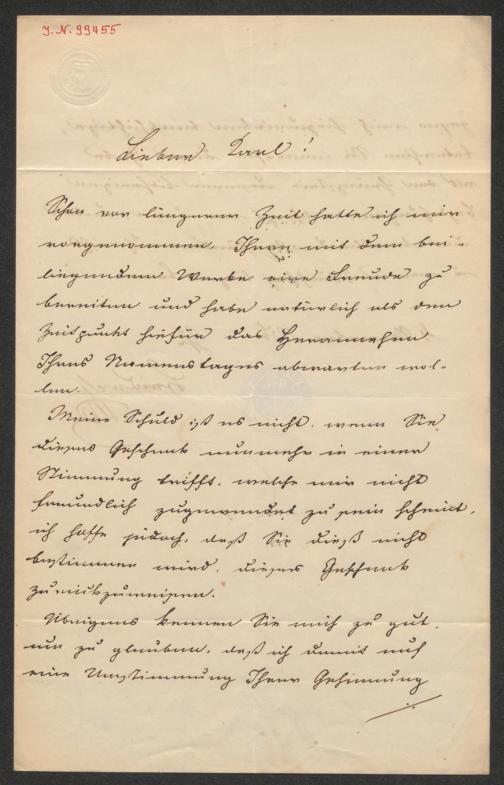 J.N. 99455
Lieber Karl!
Schon vor längerer Zeit hatte ich mir
vorgenommen, Ihnen mit dem bei-
liegenden Werke eine Freude zu
bereiten und habe natürlich als den
Zeitpunkt hiefür das Herannahen
Ihres Namenstages abwarten wol-
len.
Meine Schuld ist es nicht, wenn Sie
dieses Geschenk nunmehr in einer
Stimmung trifft, welche mir nicht
freundlich zugewendet zu sein scheint,
ich hoffe jedoch, daß Sie dieß nicht
bestimmen wird, dieses Geschenk
zurückzuweisen.
Übrigens kennen Sie mich zu gut,
um zu glauben, daß ich damit auf
eine Umstimmung Ihrer Gesinnung